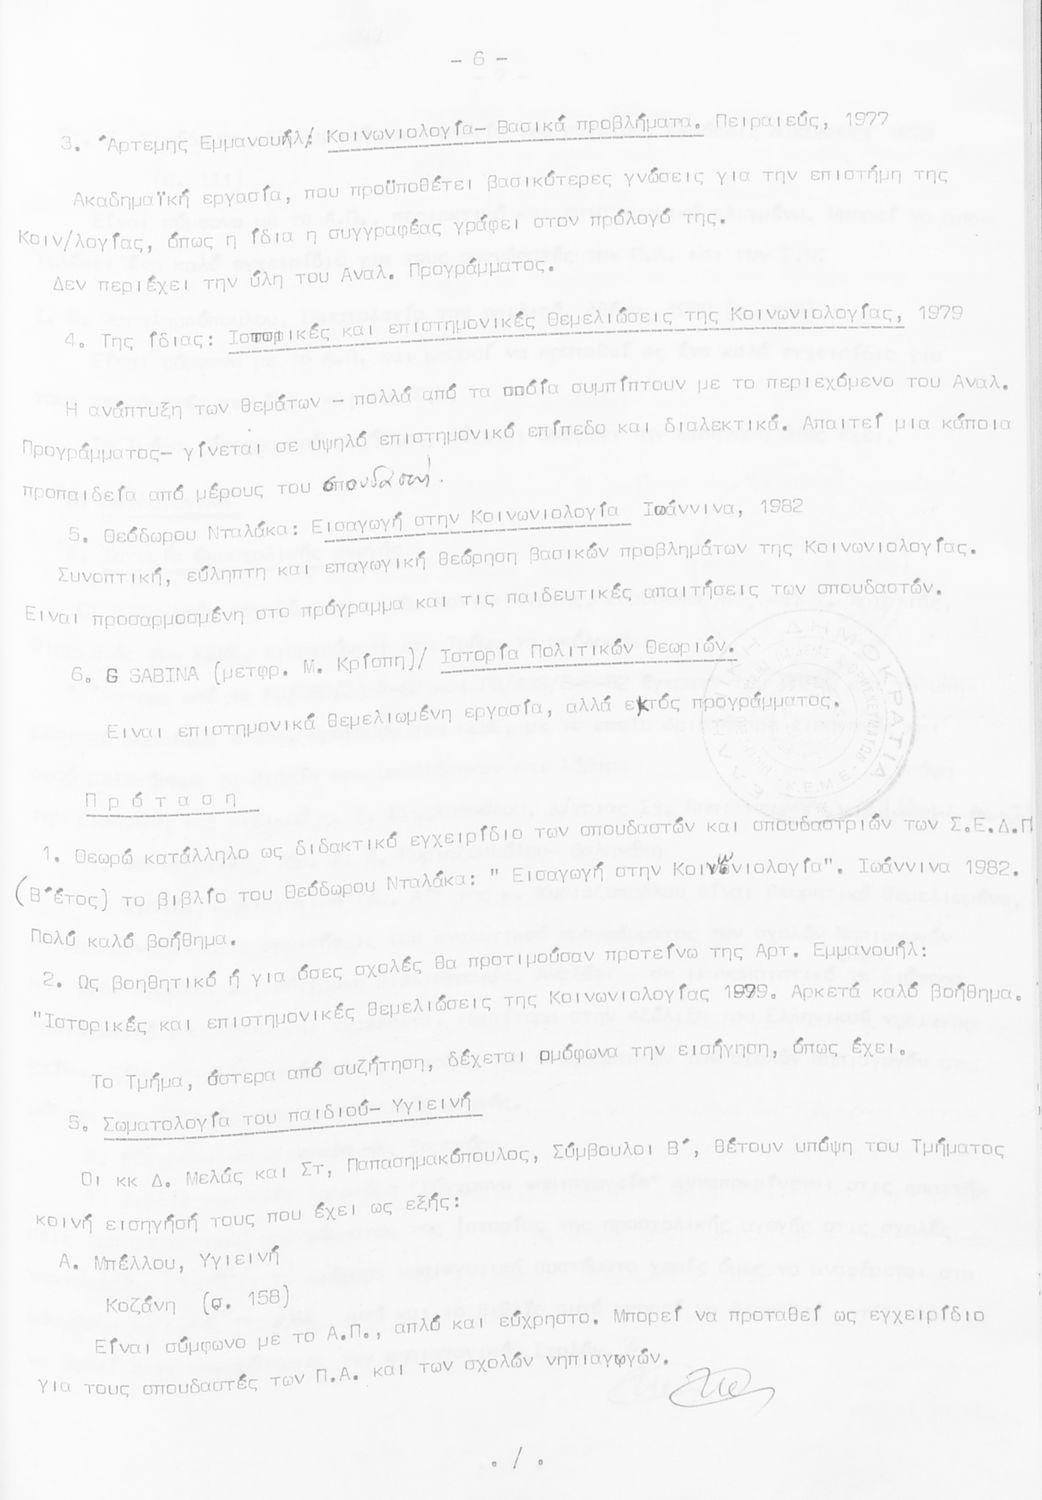 - 6 -
3. Άρτεμης Εμμανουήλ/ Κοινωνιολογία- Βασικά προβλήματα. Πειραιεύς, 1977
Ακαδημαϊκή εργασία, που προϋποθέτει βασικότερες γνώσεις για την επιστήμη της
Κοιν/λογίας, όπως η ίδια η συγγραφέας γράφει στον πρόλογό της.
Δεν περιέχει την ύλη του Αναλ. Προγράμματος.
4. Της ίδιας: Ιστορικές και επιστημονικές θεμελιώσεις της Κοινωνιολογίας, 1979
Η ανάπτυξη των θεμάτων - πολλά από τα οποία συμπίπτουν με το περιεχόμενο του Αναλ.
Προγράμματος- γίνεται σε υψηλό επιστημονικό επίπεδο και διαλεκτικά. Απαιτεί μια κάποια
προπαιδεία από μέρους του σπουδαστή.
5. Θεόδωρου Νταλάκα: Εισαγωγή στην Κοινωνιολογία Ιωάννινα, 1982
Συνοπτική, εύληπτη και επαγωγική θεώρηση βασικών προβλημάτων της Κοινωνιολογίας.
Ειναι προσαρμοσμένη στο πρόγραμμα και τις παιδευτικές απαιτήσεις των σπουδαστών.
6. G SABINA (μετφρ. Μ. Κρίσπη)/ Ιστορία Πολιτικών Θεωριών.
Ειναι επιστημονικά θεμελιωμένη εργασία, αλλά εκτός προγράμματος.
ΕΛΛΗΝΙΚΗ ΔΗΜΟΚΡΑΤΙΑ
Κ.Ε.Μ.Ε.
Πρόταση
1. Θεωρώ κατάλληλο ως διδακτικό εγχειρίδιο των σπουδαστών και σπουδαστριών των Σ.Ε.Δ.Π
(Β΄έτος) το βιβλίο του Θεόδωρου Νταλάκα: " Εισαγωγή στην Κοινωνιολογία". Ιωάννινα 1982.
Πολύ καλό βοήθημα.
2. Ως βοηθητικό ή για όσες σχολές θα προτιμούσαν προτείνω της Αρτ. Εμμανουήλ:
"Ιστορικές και επιστημονικές θεμελιώσεις της Κοινωνιολογίας 1979. Αρκετά καλό βοήθημα.
Το Τμήμα, ύστερα από συζήτηση, δέχεται ομόφωνα την εισήγηση, όπως έχει.
5. Σωματολογία του παιδιού- Υγιεινή
Οι κκ Δ. Μελάς και Στ, Παπασημακόπουλος, Σύμβουλοι Β΄, θέτουν υπόψη του Τμήματος
κοινή εισηγησή τους που έχει ως εξής:
Α. Μπέλλου, Υγιεινή
Κοζάνη (σ. 158)
Είναι σύμφωνο με το Α.Π., απλό και εύχρηστο. Μπορεί να προταθεί ως εγχειρίδιο
για τους σπουδαστές των Π.Α. και των σχολών νηπιαγωγών.
. / .